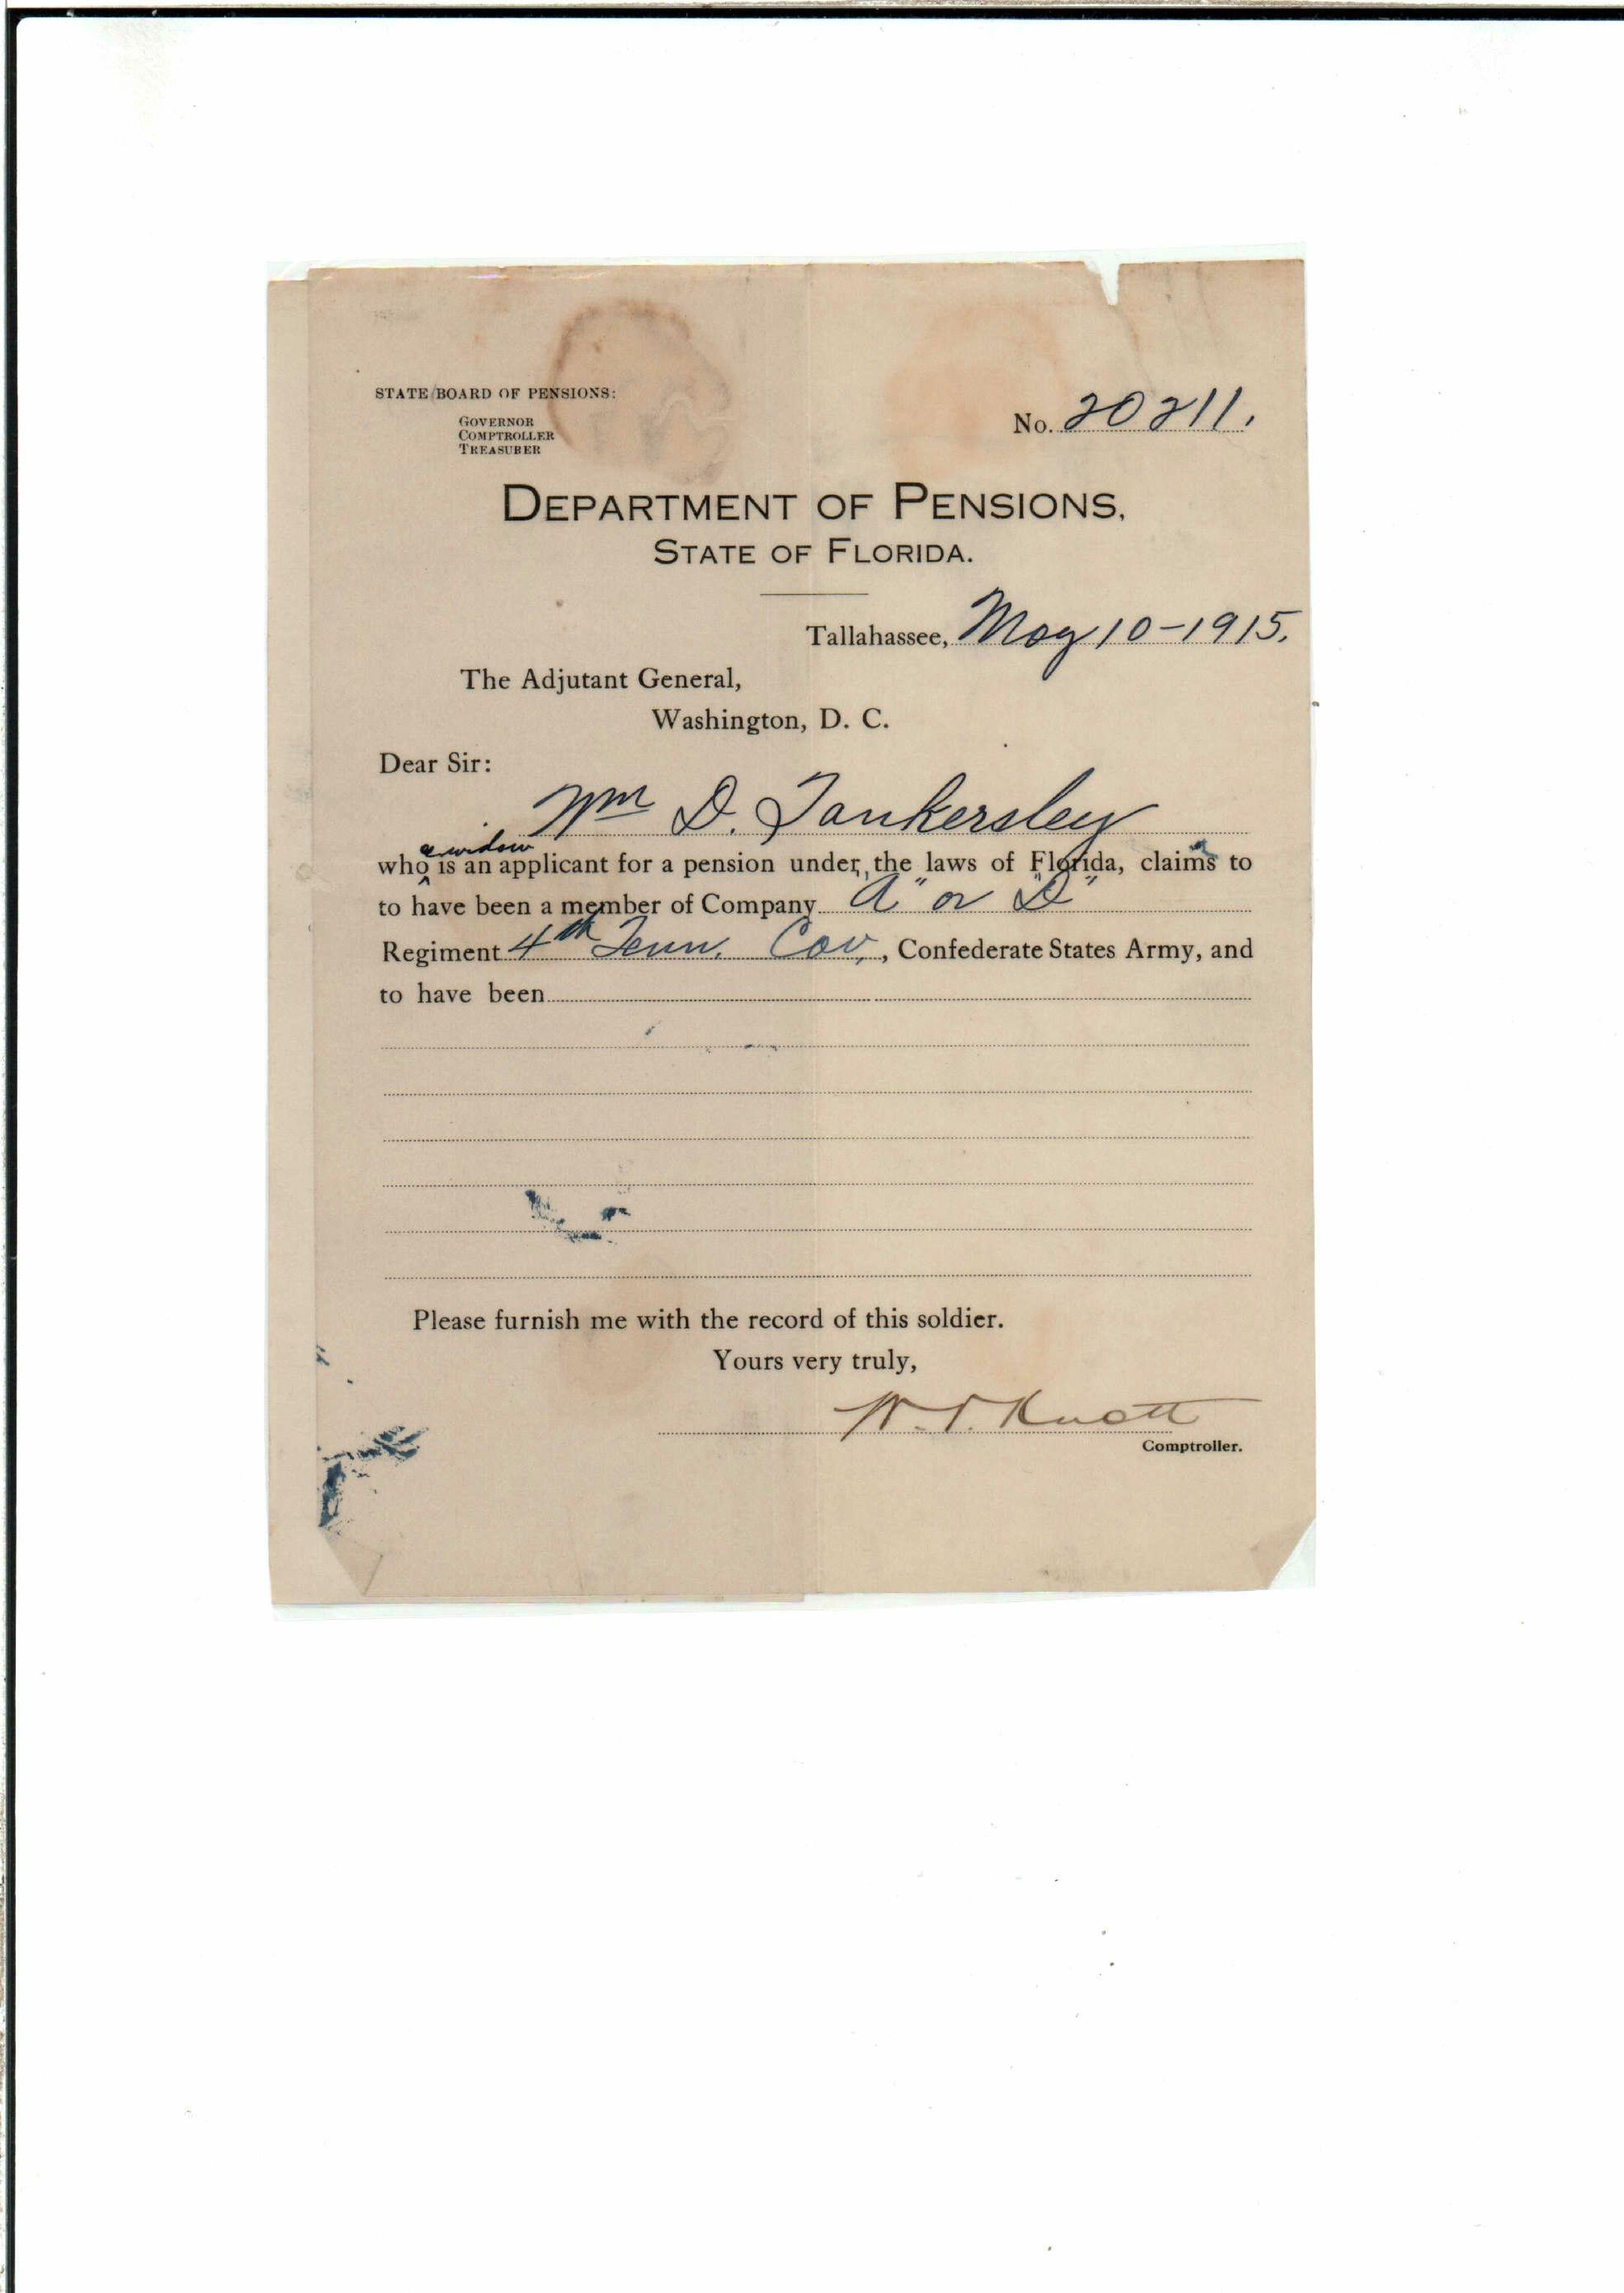 STATE BOARD OF PENSIONS:
GOVERNOR
COMPTROLLER
TREASURER
No. 20211.
DEPARTMENT OF PENSIONS,
STATE OF FLORIDA.
Tallahassee, May 10-1915.
The Adjutant General,
Washington, D. C.
Dear Sir:
Wm D. Tankersley
who is an applicant for a pension under the laws of Florida, claims to
to have been a member of Company "A" or "D"
Regiment 4th Tenn. Cav., Confederate States Army, and
to have been
Please furnish me with the record of this soldier.
Yours very truly,
W. V. Knott
Comptroller.